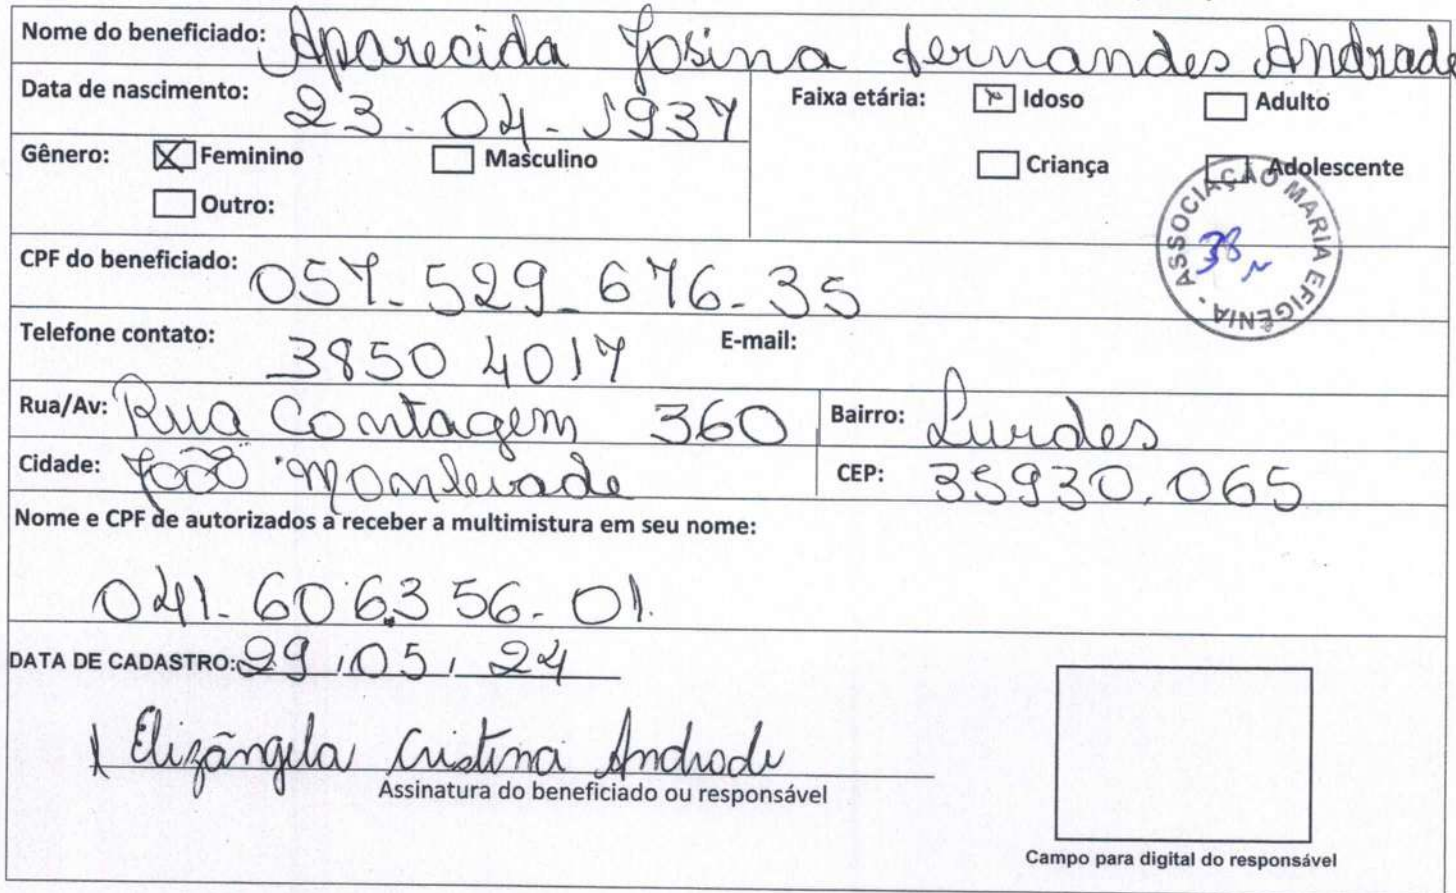 Nome do beneficiado: Aparecida Josina Fernandes Andrade
Data de nascimento: 23.04.1937
Faixa etária: Idoso Adulto
Gênero: X Feminino Masculino
Criança Adolescente
Outro:
ASSOCIAÇÃO MARIA EFIGÊNIA
38
CPF do beneficiado: 057.529.676-35
Telefone contato: 3850 4017 E-mail:
Rua/Av: Rua Contagem 360 Bairro: Lurdes
Cidade: João Monlevade CEP: 35930.065
Nome e CPF de autorizados a receber a multimistura em seu nome:
041.606.356-01.
DATA DE CADASTRO: 29/05/24
Elizângela Cristina Andrade
Assinatura do beneficiado ou responsável
Campo para digital do responsável